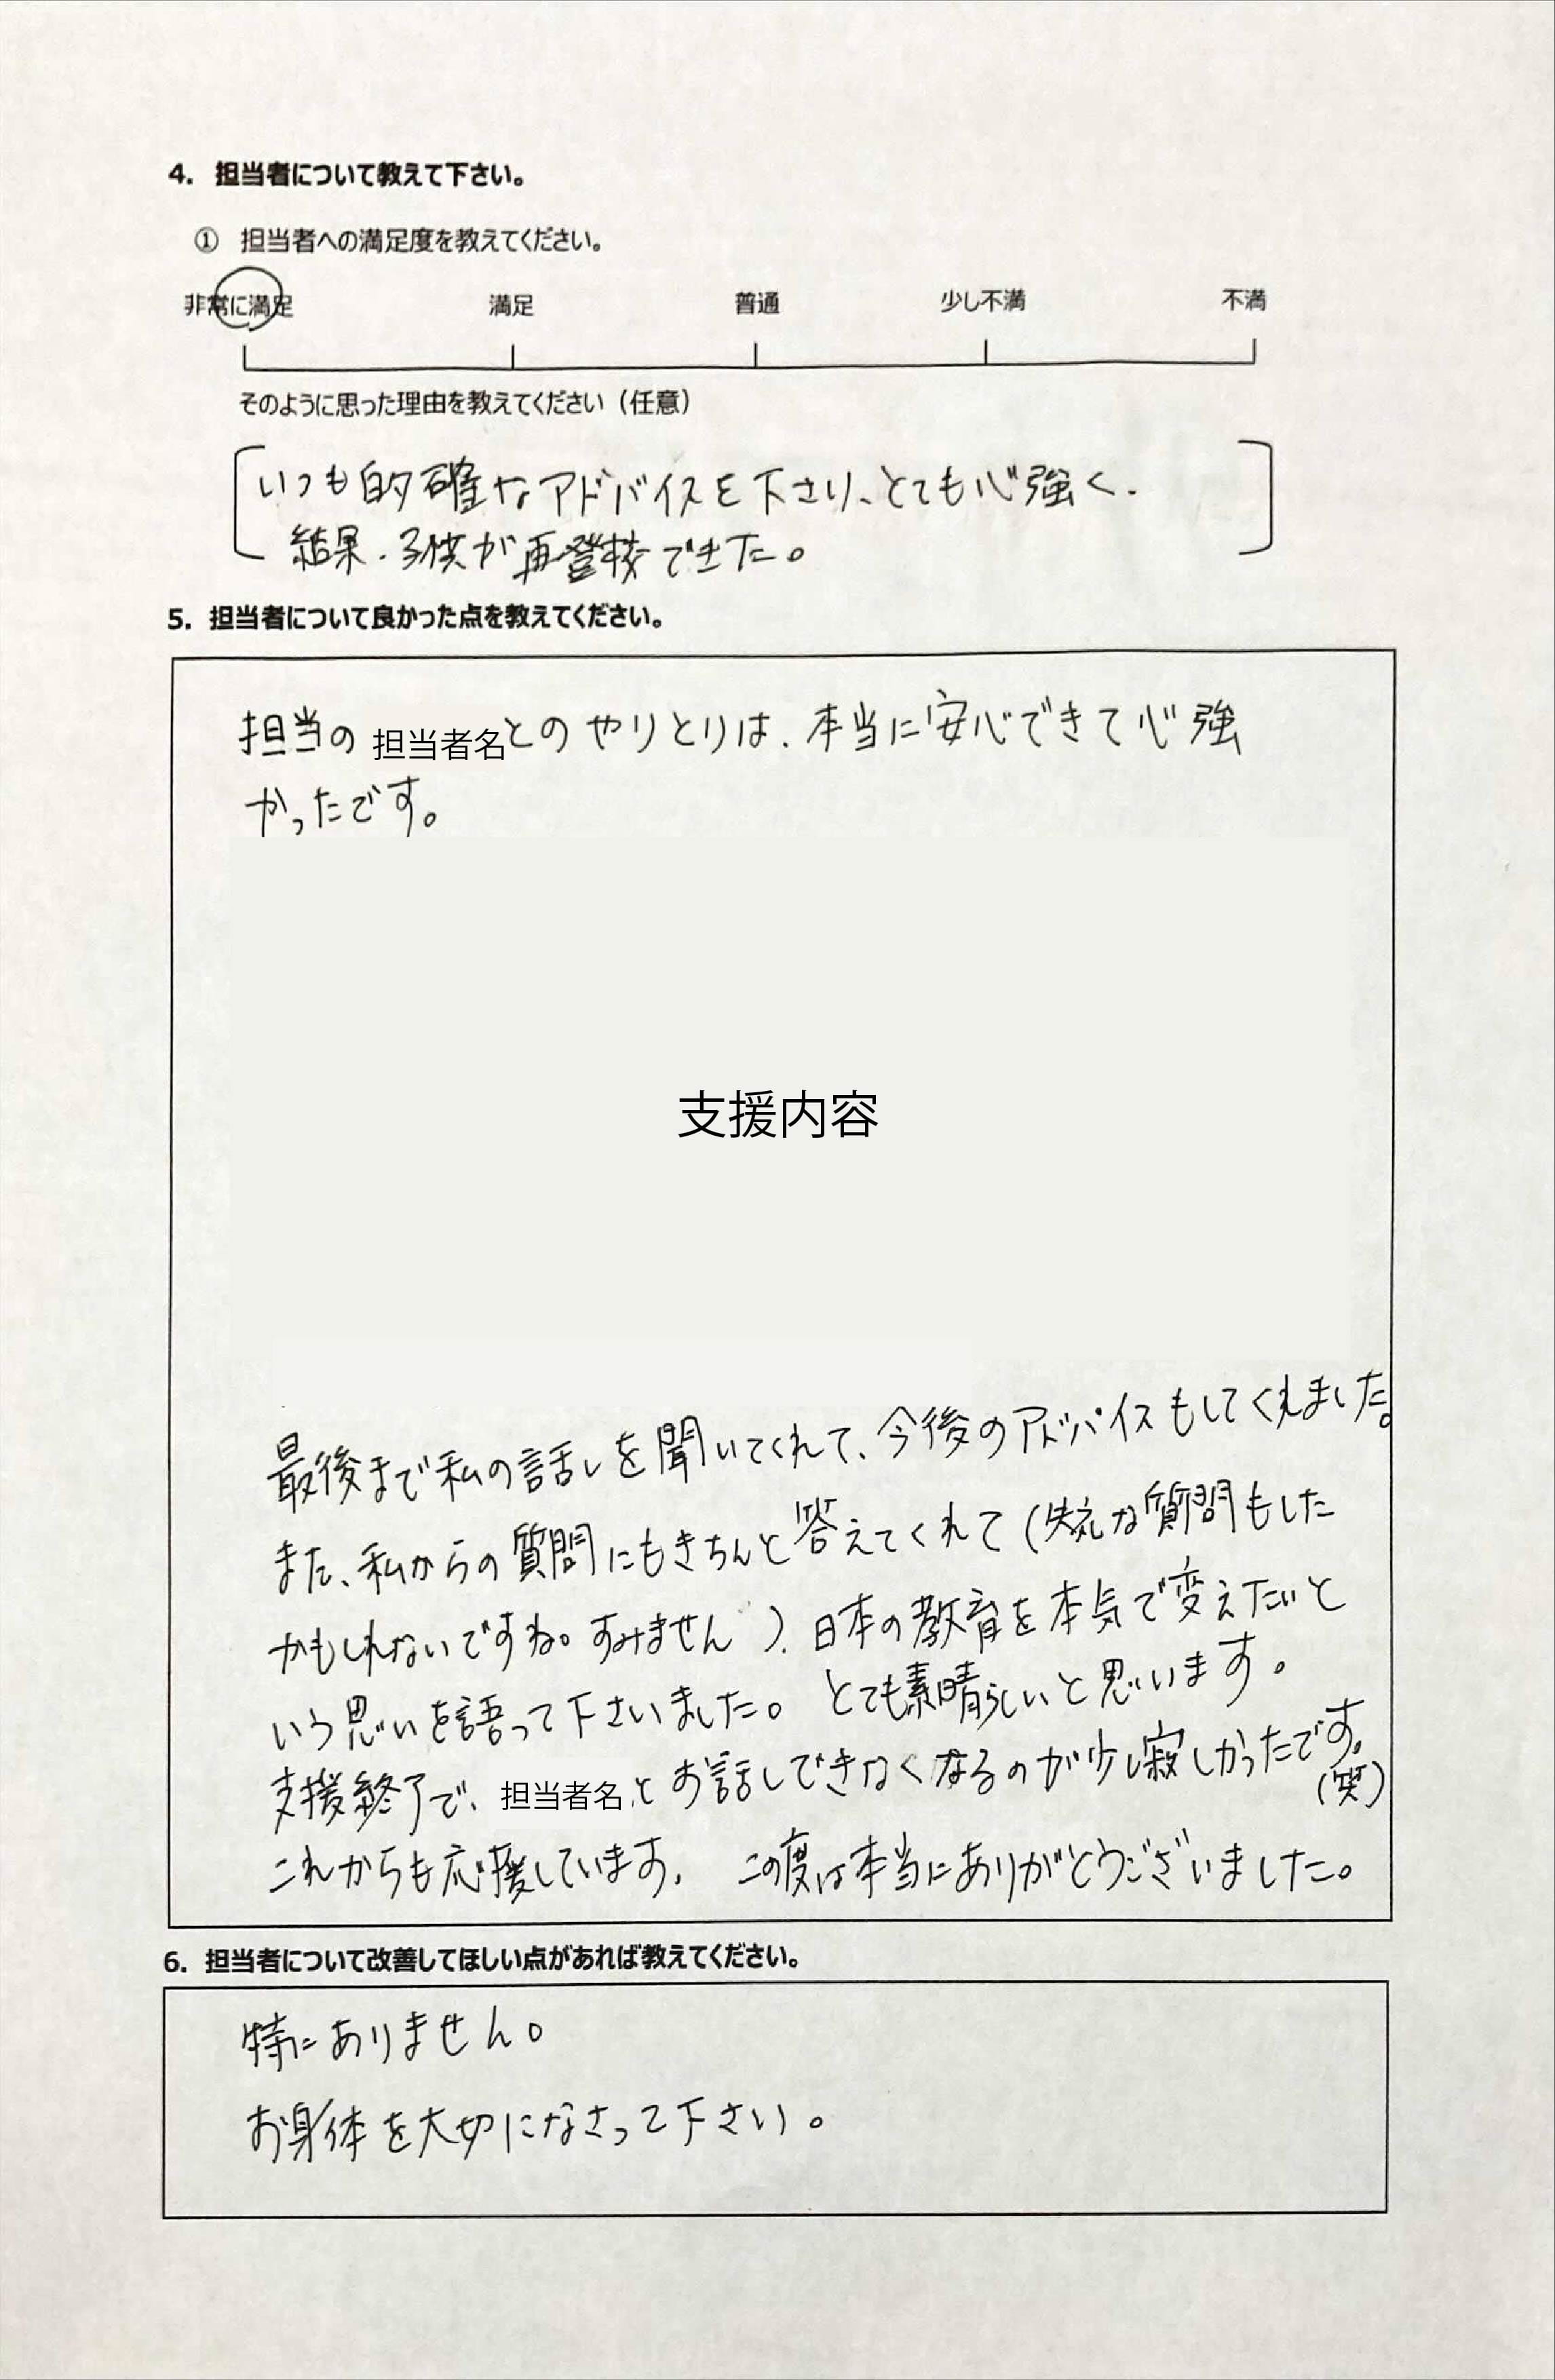 4. 担当者について教えて下さい。
① 担当者への満足度を教えてください。
非常に満足 満足 普通 少し不満 不満
そのように思った理由を教えてください（任意）
いつも的確なアドバイスを下さり、とても心強く、
結果、子供が再登校できた。
5. 担当者について良かった点を教えてください。
担当の 担当者名とのやりとりは、本当に安心できて心強
かったです。
支援内容
最後まで私の話しを聞いてくれて、今後のアドバイスもしてくれました。
また、私からの質問にもきちんと答えてくれて（失礼な質問もした
かもしれないですね。すみません）、日本の教育を本気で変えたいと
いう思いを語って下さいました。とても素晴らしいと思います。
支援終了で、担当者名とお話しできなくなるのが少し寂しかったです。
（笑）
これからも応援しています。 この度は本当にありがとうございました。
6. 担当者について改善してほしい点があれば教えてください。
特にありません。
お身体を大切になさって下さい。